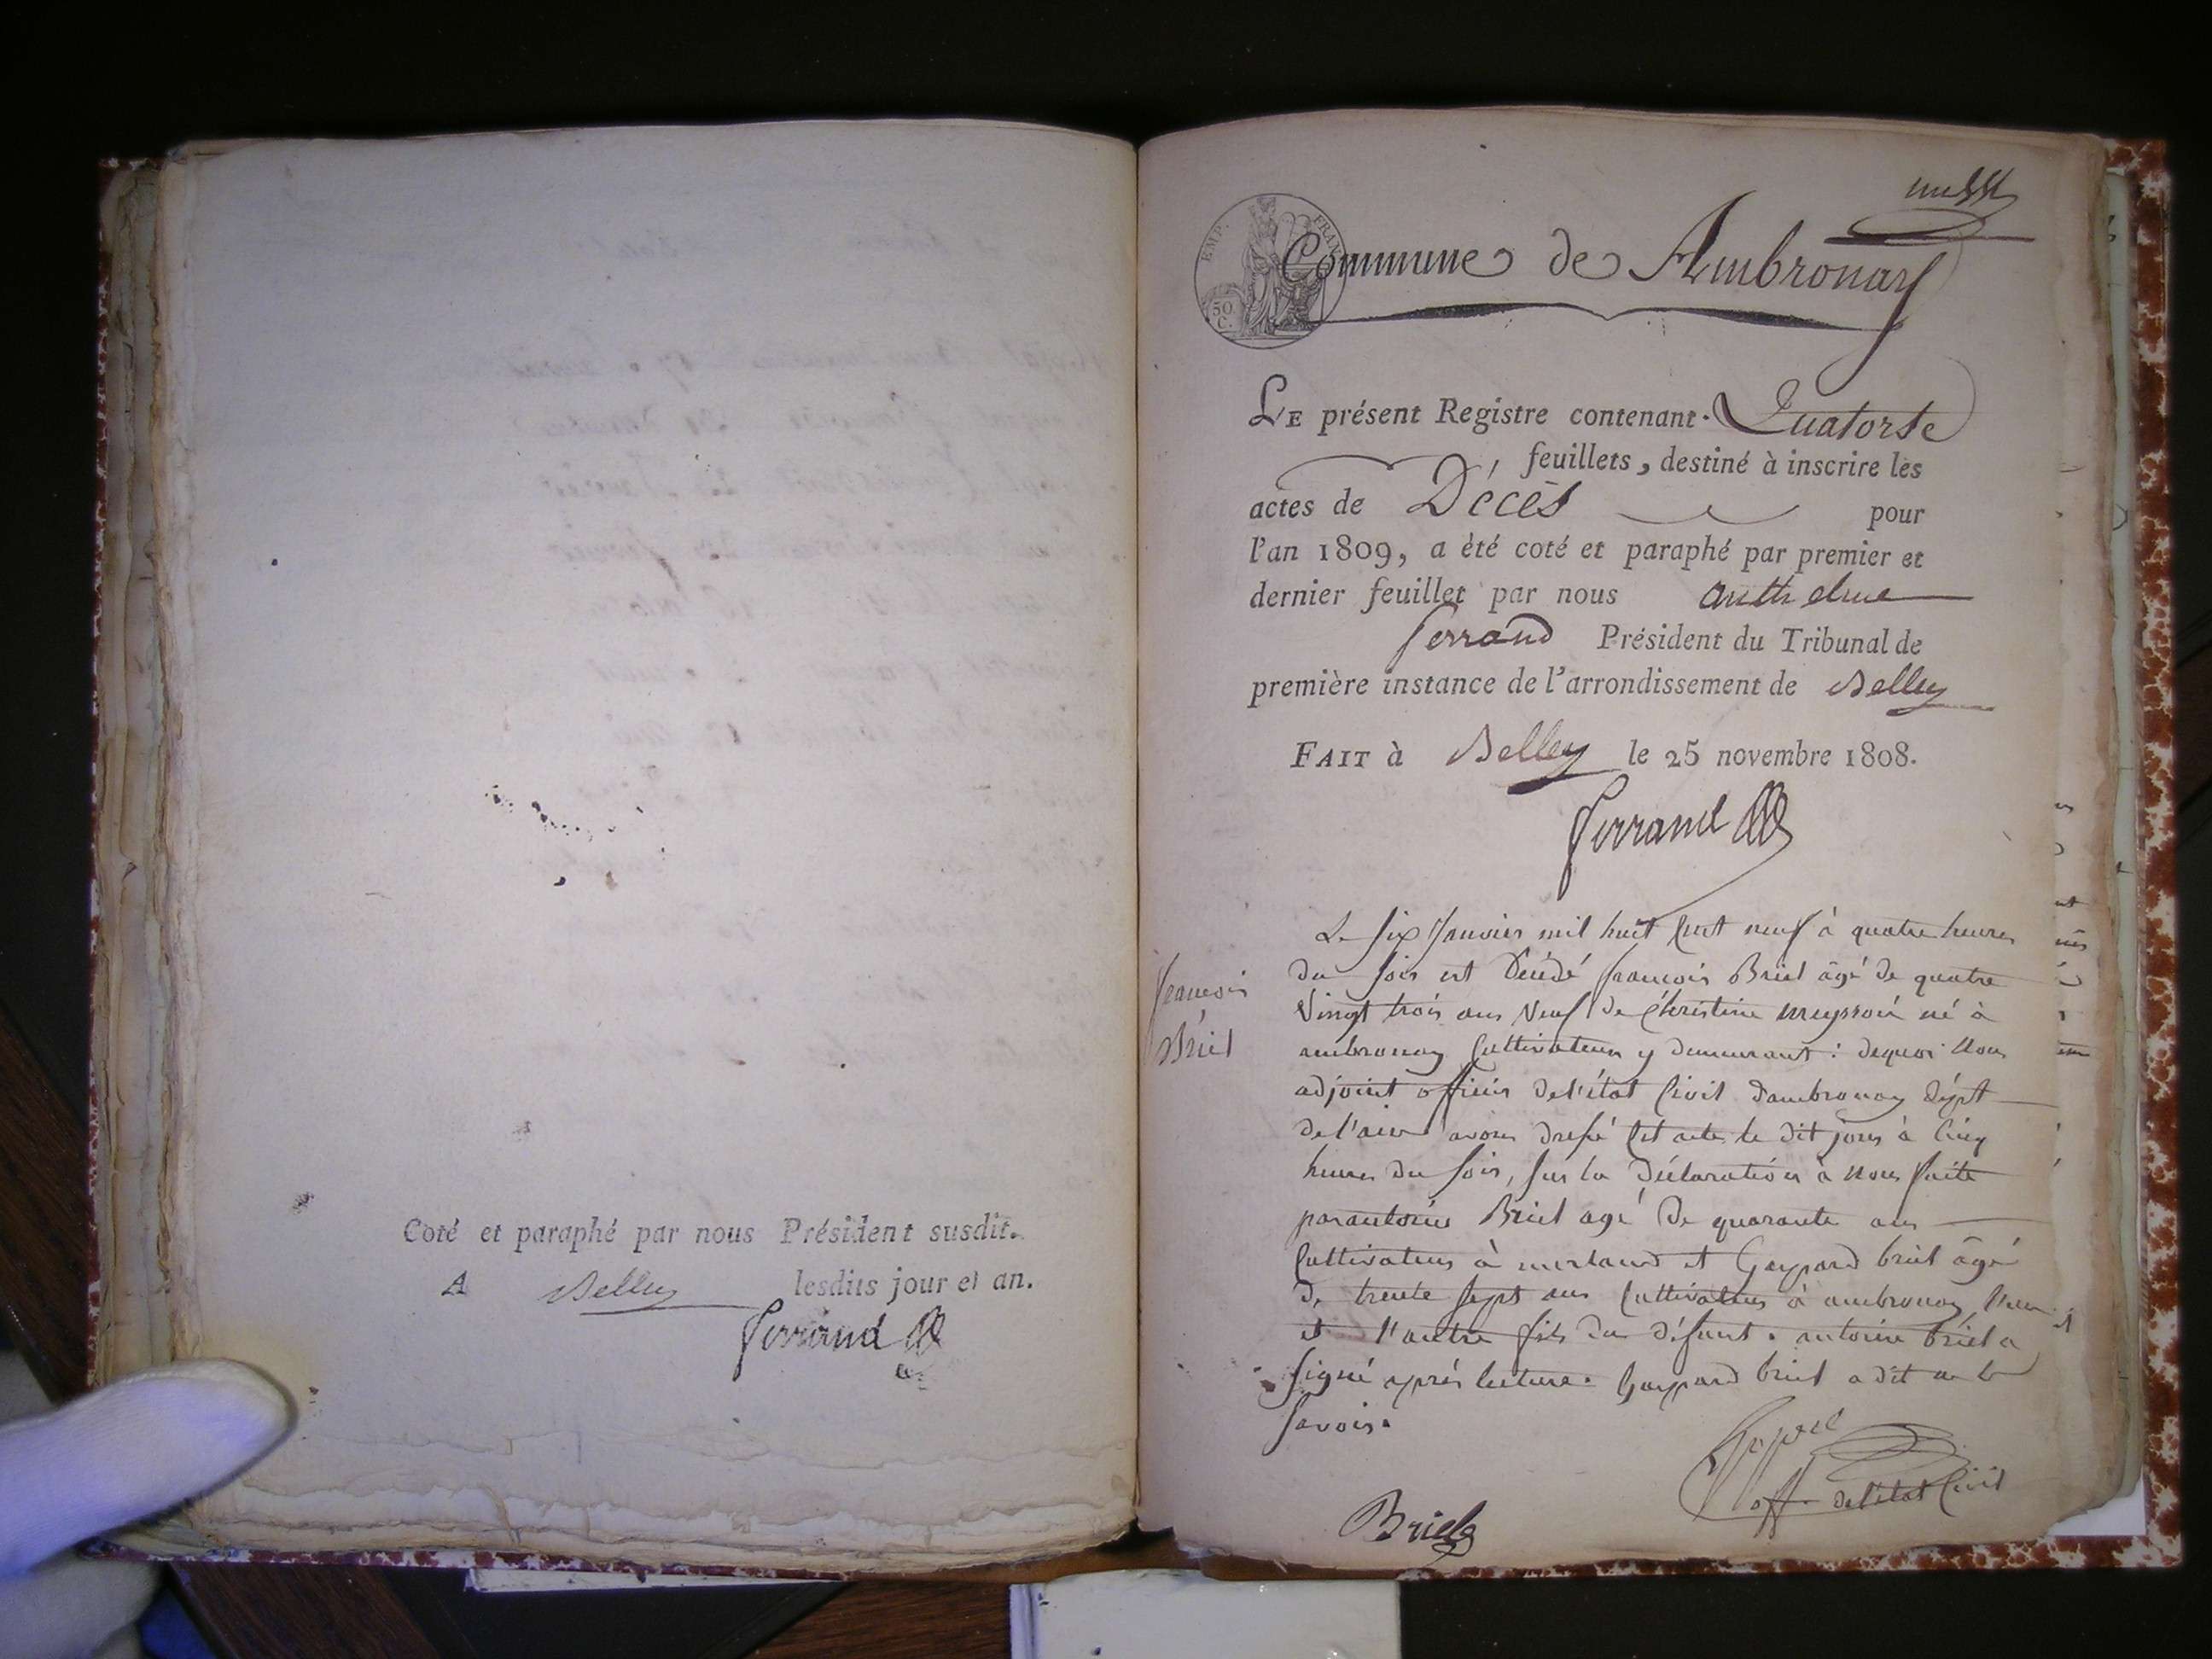 Coté et paraphé par nous Président susdit.
A Belley lesdits jour et an.
Ferrand
EMP. FRAN
50 C.
Commune de Ambronay
LE présent Registre contenant Quatorse
feuillets, destiné à inscrire les
actes de Décès pour
l'an 1809, a été coté et paraphé par premier et
dernier feuillet par nous anthelme
ferrand Président du Tribunal de
première instance de l'arrondissement de Belley
FAIT à Belley le 25 novembre 1808.
Ferrand
françois
Briel
Le six Janvier mil huit Cent neuf à quatre heures
du soir est Décédé françois Briel âgé de quatre
Vingt trois ans Veuf de Christine né à
ambronay Cultivateur y demeurant : dequoi Nous
adjoint officier de l'état Civil dambronay dépt
de l'ain avons dressé Cet acte le dit jour à Cinq
heures du soir, sur la Déclaration à nous faite
par antoine Briel agé De quarante ans
Cultivateur à merland et Gaspard briel âgé
De trente sept ans Cultivateur à ambronay l'un
et l'autre fils du défunt. antoine briel a
signé après lecture. Gaspard briel a dit ne le
savoir.
off. de l'état Civil
Briel